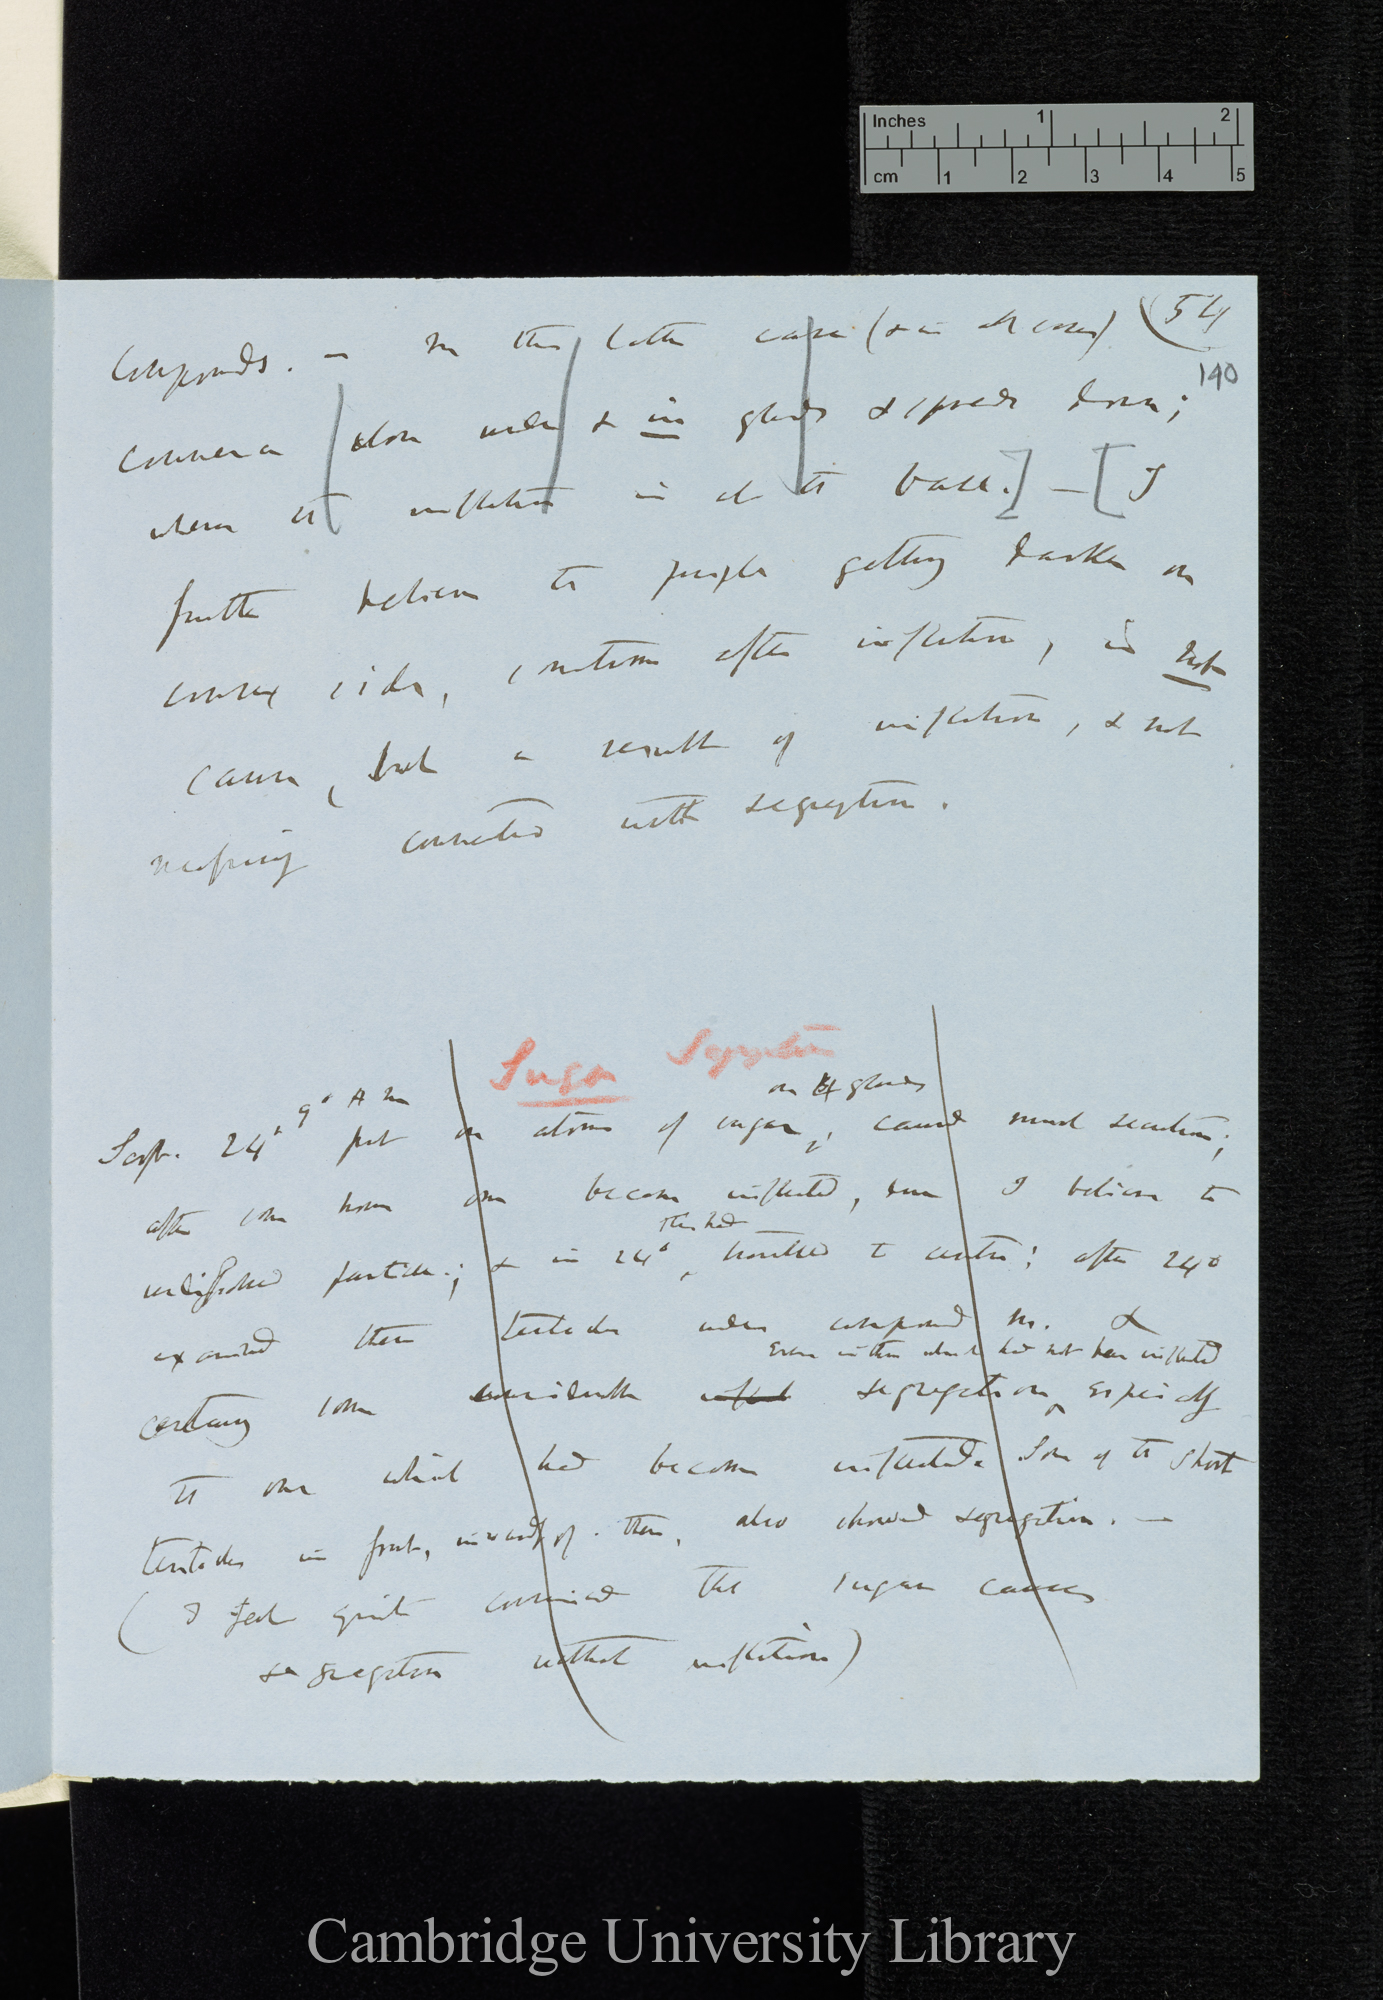 Inches 1 2
cm 1 2 3 4 5
(54
140
compounds. — In this latter case (& in all cases)
commence close under & in glands & spreads down;
where the inflection is at the base.] — [I
further believe the purple getting darker on
convex side, sometime after inflection, is not
cause, but a result of inflection, & not
necessarily connected with segregation.
Sugar Segregation
on glands
Sept. 24° 9° A m put on atoms of sugar, caused much secretion;
after some hours one become inflected, I believe to
undissolved particle; & in 24° this had travelled to centre; after 24°
examined these tentacles under compound m. &
Even in those which had not been inflected
certainly some considerable segregation, especially
the one which had become inflected. Some of the short
tentacles in front, inwards of them, also showed segregation. —
(I feel quite convinced that sugar causes
segregation without inflection)
Cambridge University Library